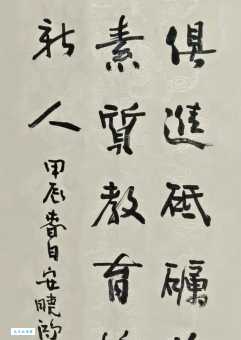 俱進砥礪
素質教育
新人
甲辰春日安曉